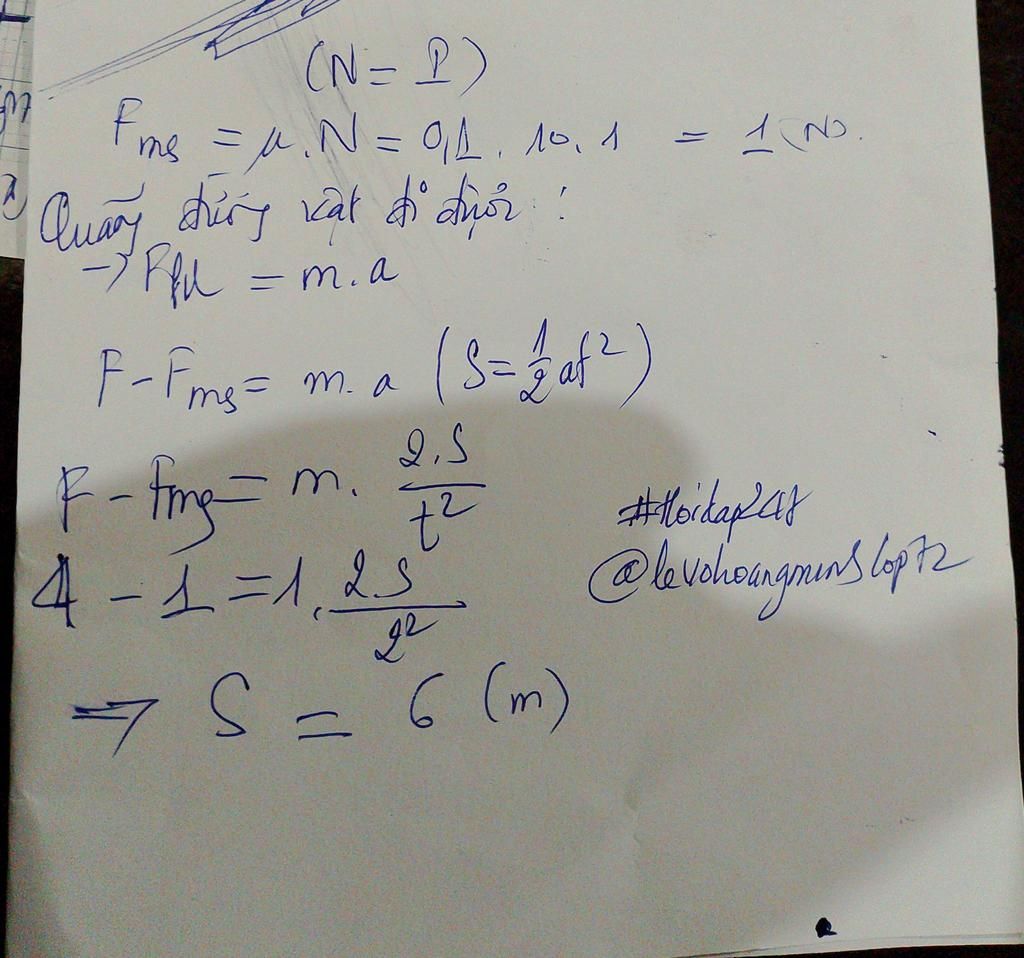 (N = P)
Fms = μ.N = 0,1. 10. 1 = 1 (N).
Quãng đường vật đi được :
→ Fhl = m.a
F - Fms = m.a (S = 1/2 at²)
F - Fms = m. 2.S/t²
4 - 1 = 1. 2S/2²
#Hoidap247
@levohoangminslop72
⇒ S = 6 (m)